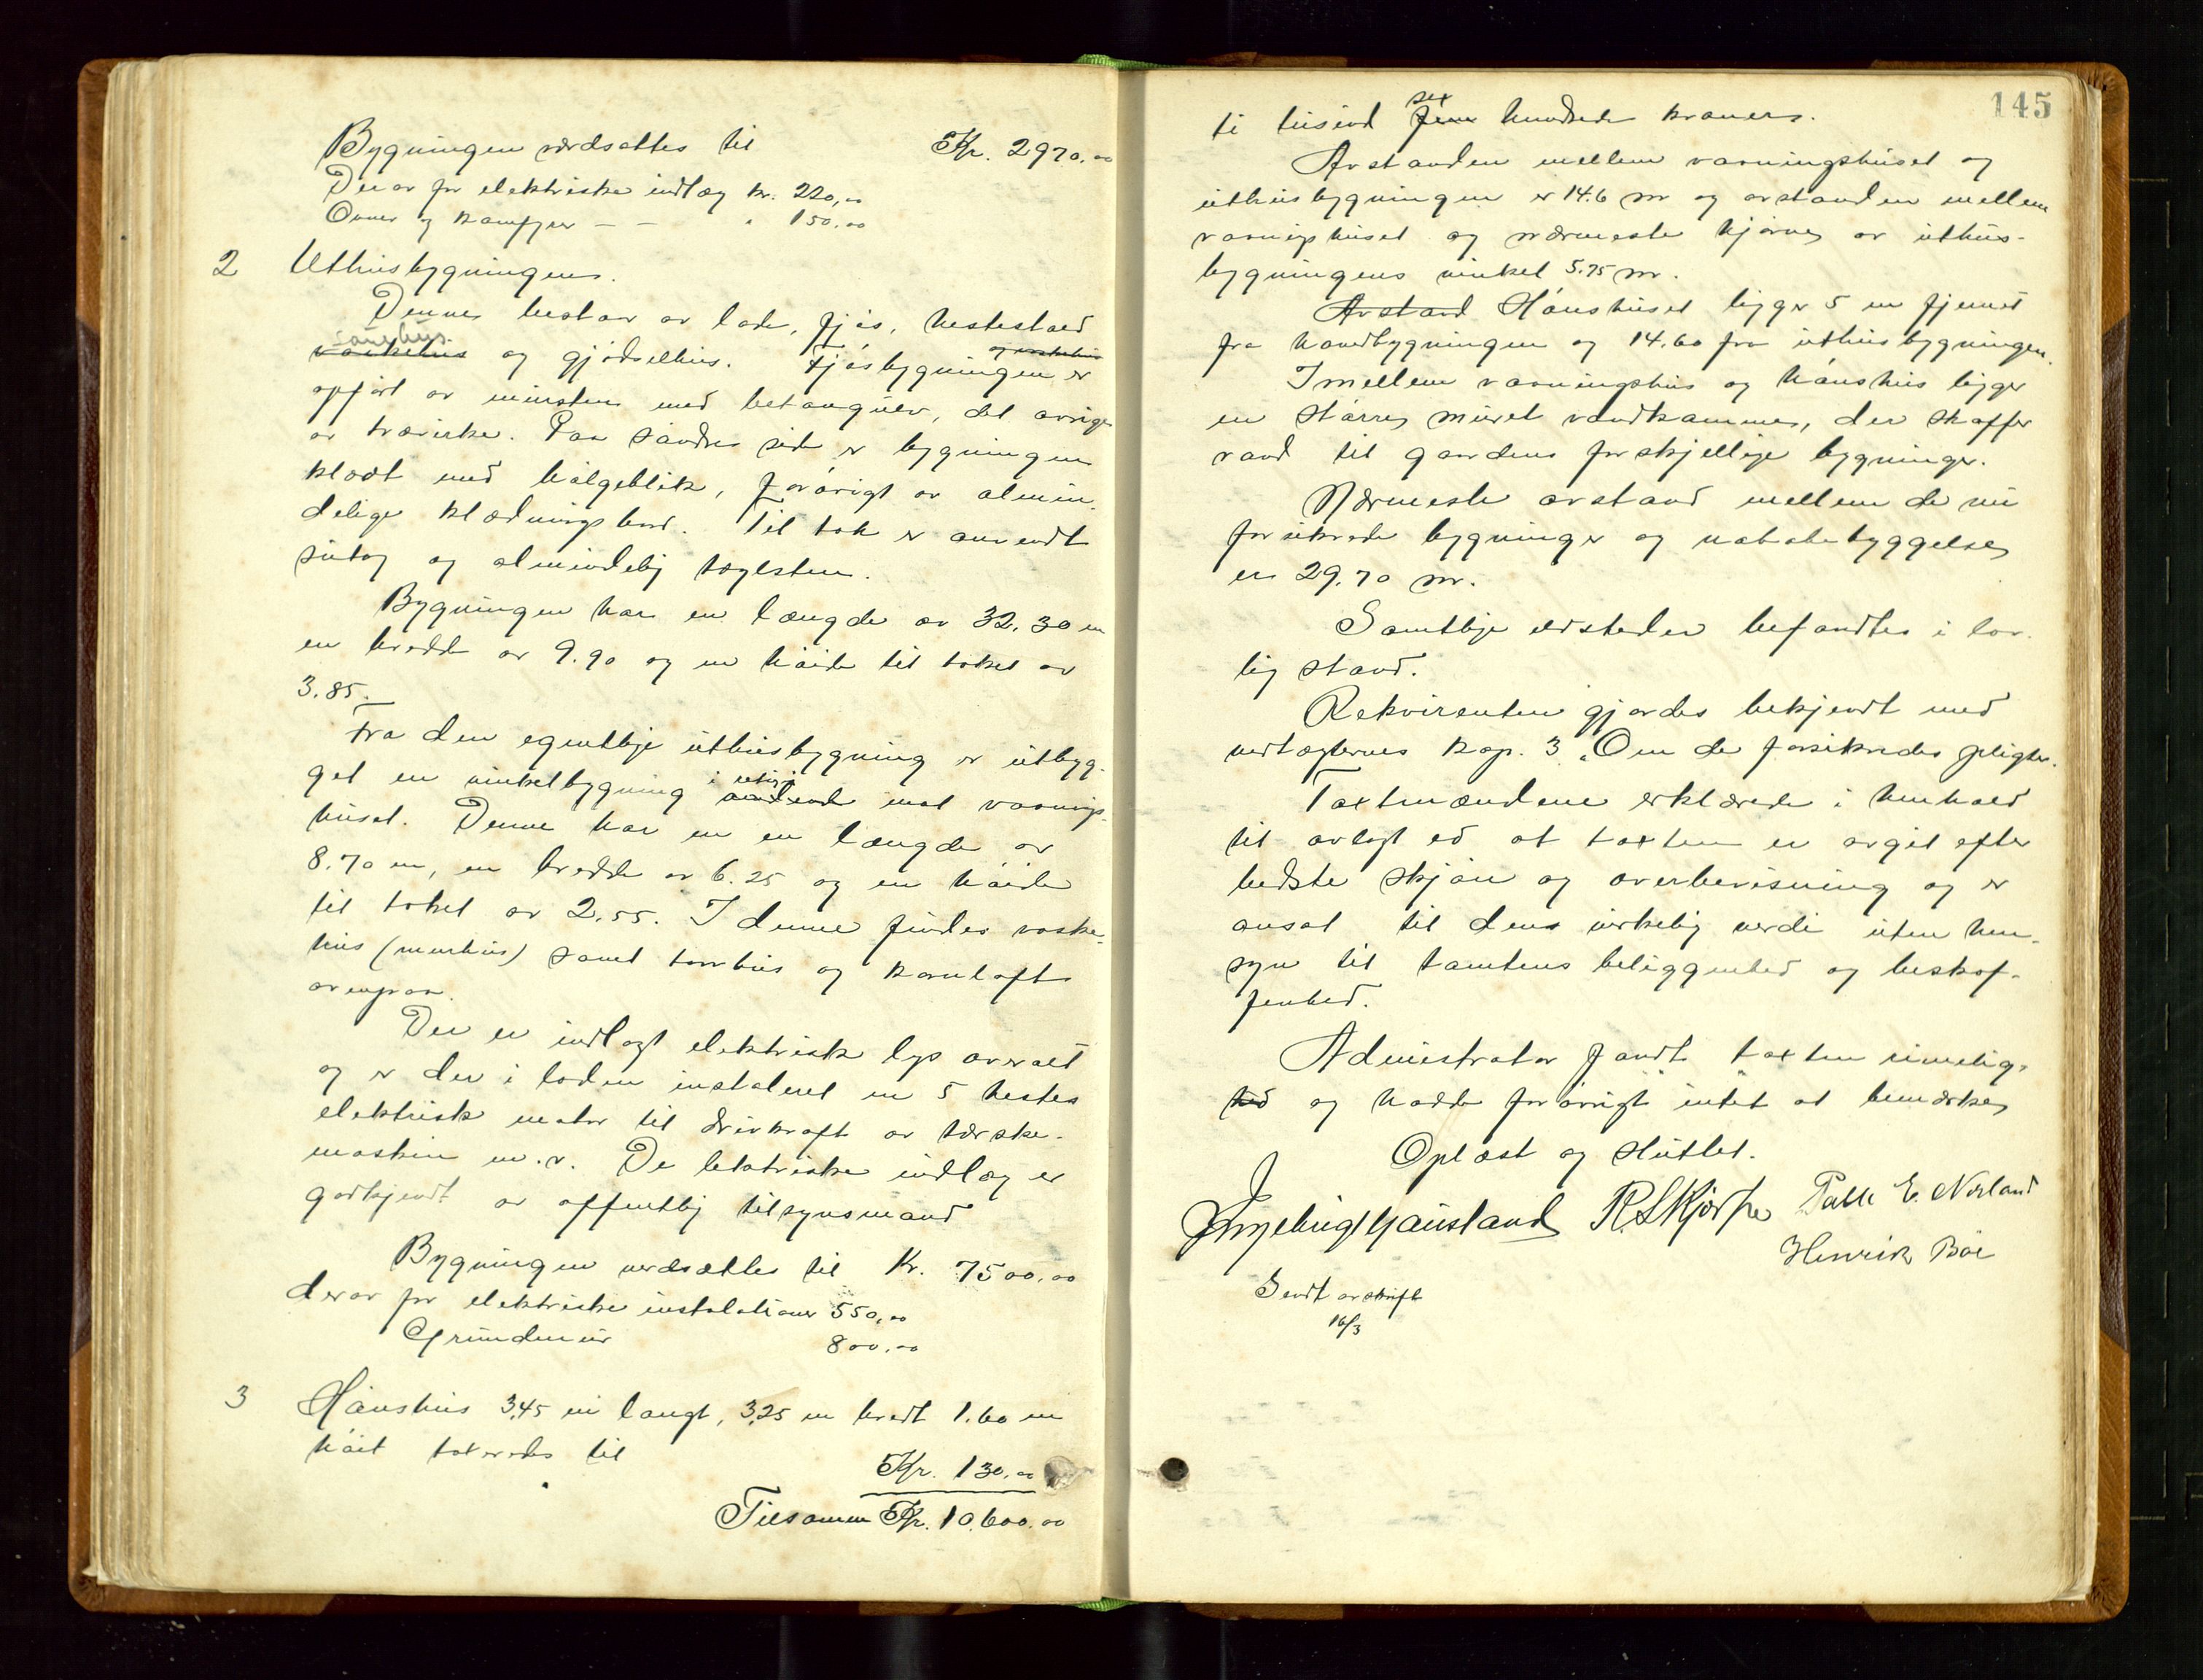 Bygningen værdsættes til Kr. 2970.00
Derav for elektriske indlæg kr. 220,00
Ovner og kamfyer — — " 150,00
2 Uthusbygningen.
Denne bestaar av lade, fjøs, hestestald
vaskehus og gjødselhus. Fjøsbygningen er
opført av mursten med betongulv, det øvrige
av trævirke. Paa søndre side er bygningen
klædt med bølgeblik, forøvrigt av almin-
delige klædningsbord. Til tak er anvendt
sutag og almindelig taglsten.
Bygningen har en længde av 32,30 m
en bredde av 9.90 og en høide til taket av
3.85.
Fra den egentlige uthusbygning er utbyg-
get en vinkelbygning i retning mot vaanings-
huset. Denne har en en længde av
8.70 m, en bredde av 6.25 og en høide
til taket av 2,55. I denne findes vaske-
hus (murhus) samt torvhus og kornloft
ovenpaa.
Der er indlagt elektrisk lys overalt
og er der i loden instaleret en 5 hestes
elektrisk motor til drivkraft av tærske-
maskin m.v. De lektriske indlæg er
godkjendt av offentlig tilsynsmand
Bygningen verdsættes til Kr. 7500,00
derav for elektriske instalationer 550,00
Grundmur 800,00
3 Hønshus 3,45 m langt, 3,25 m bredt 1.60 m
høit taxeredes til
Kr. 130,00
Tilsamen Kr. 10.600.00
145
sex
ti tusind fem hundrede kroner.
Avstanden mellem vaaningshuset og
uthusbygningen er 14.6 m og avstanden mellem
vaaningshuset og nærmeste hjørne av uthus-
bygningens vinkel 5.75 m.
Avstand Hønshuset ligger 5 m fjernet
fra hovedbygningen og 14.60 fra uthusbygningen.
Imellem vaaningshus og hønshus ligger
en større muret vandkamme, der skaffer
vand til gaardens forskjellige bygninger.
Nærmeste avstand mellem de nu
forsikrede bygninger og nabobebyggelse
er 29.70 m.
Samtlige ildsteder befandtes i lov-
lig stand.
Rekvirenten gjordes bekjendt med
vedtægternes kap. 3 "Om de forsikredes pligter.
Taxtmændene erklærede i henhold
til avlagt ed at taxten er avgit efter
bedste skjøn og overbevisning og er
ansat til dens virkelig verdi uten hen-
syn til tomtens beliggenhed og beskaf-
fenhed.
Administrator fandt taxten rimelig.
hed og hadde forøvrigt intet at bemærke,
Oplæst og sluttet.
Ingebrigt Haustand R. Skjørpe Palle E. Norland
Henrik Bøe
Sendt avskrift
16/3